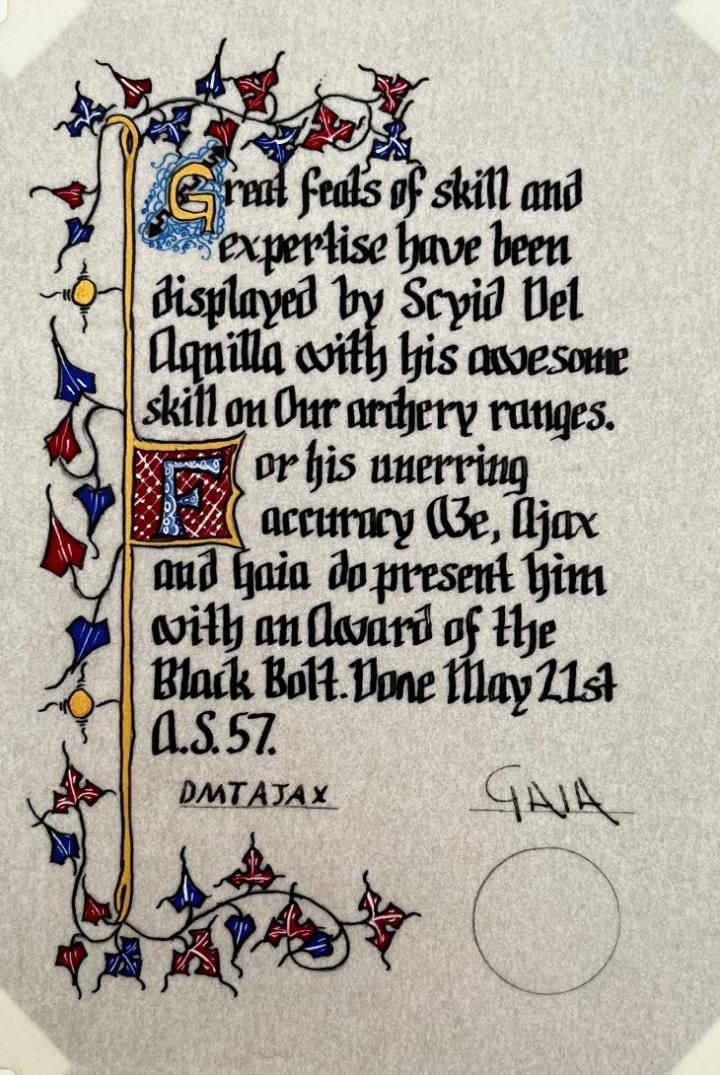 Great feats of skill and
expertise have been
displayed by Scyid Del
Aquilla with his awesome
skill on Our archery ranges.
For his unerring
accuracy We, Ajax
and Gaia do present him
with an Award of the
Black Bolt. Done May 21st
A.S. 57.
DMTAJAX
GAIA